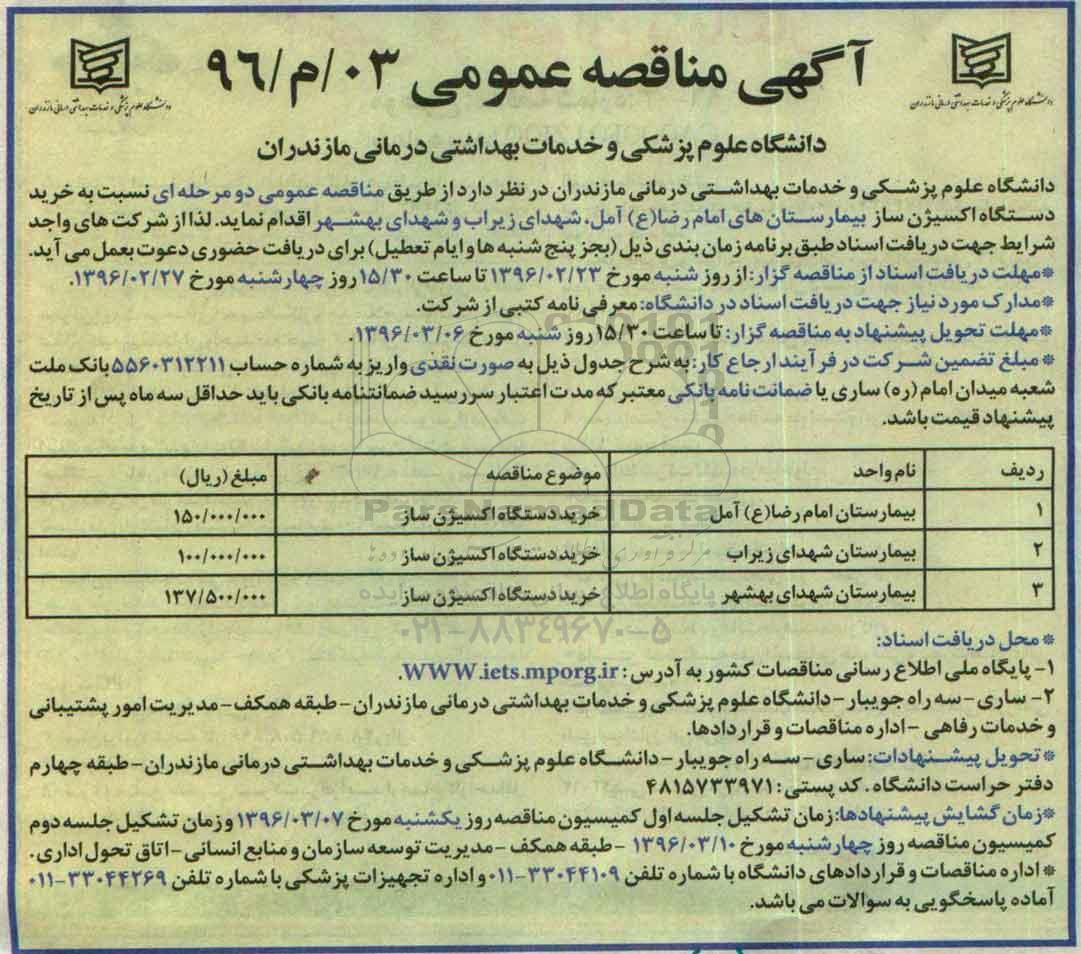 آگهی مناقصه عمومی ۰۳/م/۹۶
دانشگاه علوم پزشکی و خدمات بهداشتی درمانی مازندران
دانشگاه علوم پزشکی و خدمات بهداشتی درمانی مازندران
دانشگاه علوم پزشکی و خدمات بهداشتی درمانی مازندران
دانشگاه علوم پزشـکی و خدمات بهداشـتی درمانی مازندران در نظر دارد از طریق مناقصه عمومی دو مرحله ای نسبت به خرید
دسـتگاه اکسیژن ساز بیمارسـتان های امام رضا(ع) آمل، شهدای زیراب و شهدای بهشـهر اقدام نماید. لذا از شرکت های واجد
شرایط جهت دریافت اسناد طبق برنامه زمان بندی ذیل (بجز پنج شنبه ها و ایام تعطیل) برای دریافت حضوری دعوت بعمل می آید.
*مهلت دریافت اسناد از مناقصه گزار: از روز شنبه مورخ ۱۳۹۶/۰۲/۲۳ تا ساعت ۱۵/۳۰ روز چهارشنبه مورخ ۱۳۹۶/۰۲/۲۷.
*مدارک مورد نیاز جهت دریافت اسناد در دانشگاه: معرفی نامه کتبی از شرکت.
*مهلت تحویل پیشنهاد به مناقصه گزار: تا ساعت ۱۵/۳۰ روز شنبه مورخ ۱۳۹۶/۰۳/۰۶.
* مبلغ تضمین شـرکت در فرآیند ارجاع کار: به شرح جدول ذیل به صورت نقدی واریز به شماره حساب ۵۵۶۰۳۱۲۲۱۱ بانک ملت
شعبه میدان امام (ره) ساری یا ضمانت نامه بانکی معتبر که مدت اعتبار سررسید ضمانتنامه بانکی باید حداقل سه ماه پس از تاریخ
پیشنهاد قیمت باشد.
ردیف نام واحد موضوع مناقصه مبلغ (ریال)
۱ بیمارستان امام رضا(ع) آمل خرید دستگاه اکسیژن ساز ۱۵۰/۰۰۰/۰۰۰
۲ بیمارستان شهدای زیراب خرید دستگاه اکسیژن ساز ۱۰۰/۰۰۰/۰۰۰
۳ بیمارستان شهدای بهشهر خرید دستگاه اکسیژن ساز ۱۳۷/۵۰۰/۰۰۰
ParsNamadData
۰۲۱-۸۸۳۴۹۶۷۰-۵
* محل دریافت اسناد:
۱- پایگاه ملی اطلاع رسانی مناقصات کشور به آدرس: WWW.iets.mporg.ir.
۲- ساری - سه راه جویبار - دانشگاه علوم پزشکی و خدمات بهداشتی درمانی مازندران - طبقه همکف - مدیریت امور پشتیبانی
و خدمات رفاهی - اداره مناقصات و قراردادها.
* تحویل پیشـنهادات: ساری - سـه راه جویبار - دانشـگاه علوم پزشـکی و خدمات بهداشـتی درمانی مازندران - طبقه چهارم
دفتر حراست دانشگاه. کد پستی: ۴۸۱۵۷۳۳۹۷۱
*زمان گشایش پیشنهادها: زمان تشکیل جلسه اول کمیسیون مناقصه روز یکشنبه مورخ ۱۳۹۶/۰۳/۰۷ و زمان تشکیل جلسه دوم
کمیسیون مناقصه روز چهارشنبه مورخ ۱۳۹۶/۰۳/۱۰ - طبقه همکف - مدیریت توسعه سازمان و منابع انسانی - اتاق تحول اداری.
* اداره مناقصات و قراردادهای دانشگاه با شماره تلفن ۳۳۰۴۴۱۰۹-۰۱۱ و اداره تجهیزات پزشکی با شماره تلفن ۳۳۰۴۴۲۶۹-۰۱۱
آماده پاسخگویی به سوالات می باشد.